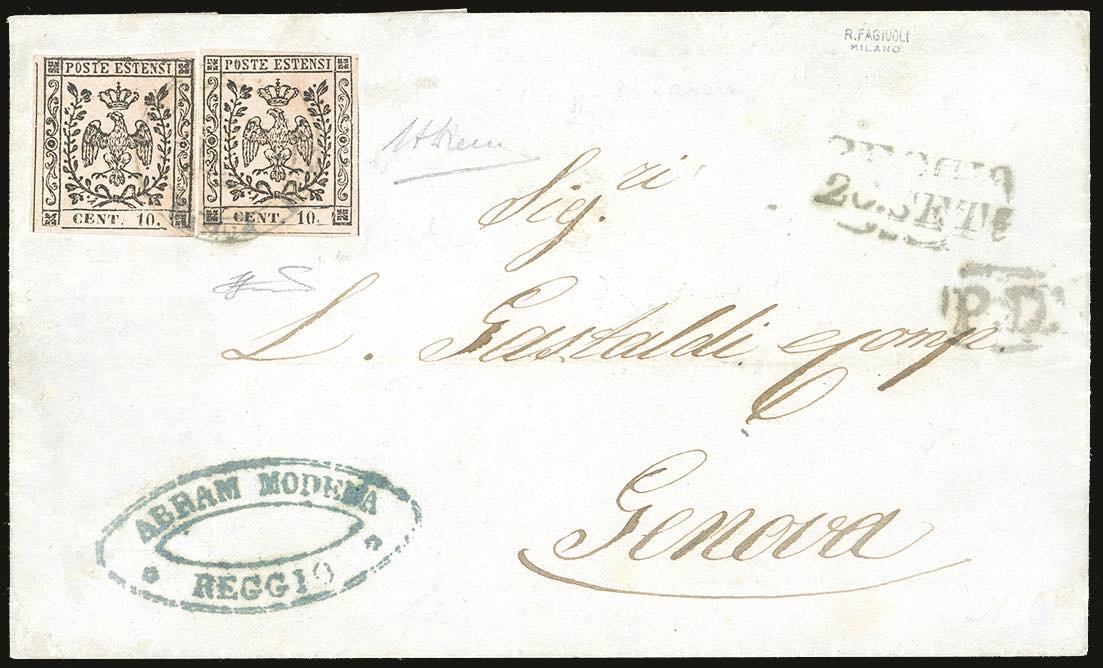 R. FAGIUOLI
MILANO
POSTE ESTENSI
CENT. 10.
POSTE ESTENSI
CENT. 10.
REGGIO
SET
P.D.
Sig.ri
L. Gastaldi e Comp.
Genova
ABRAM MODENA
REGGIO